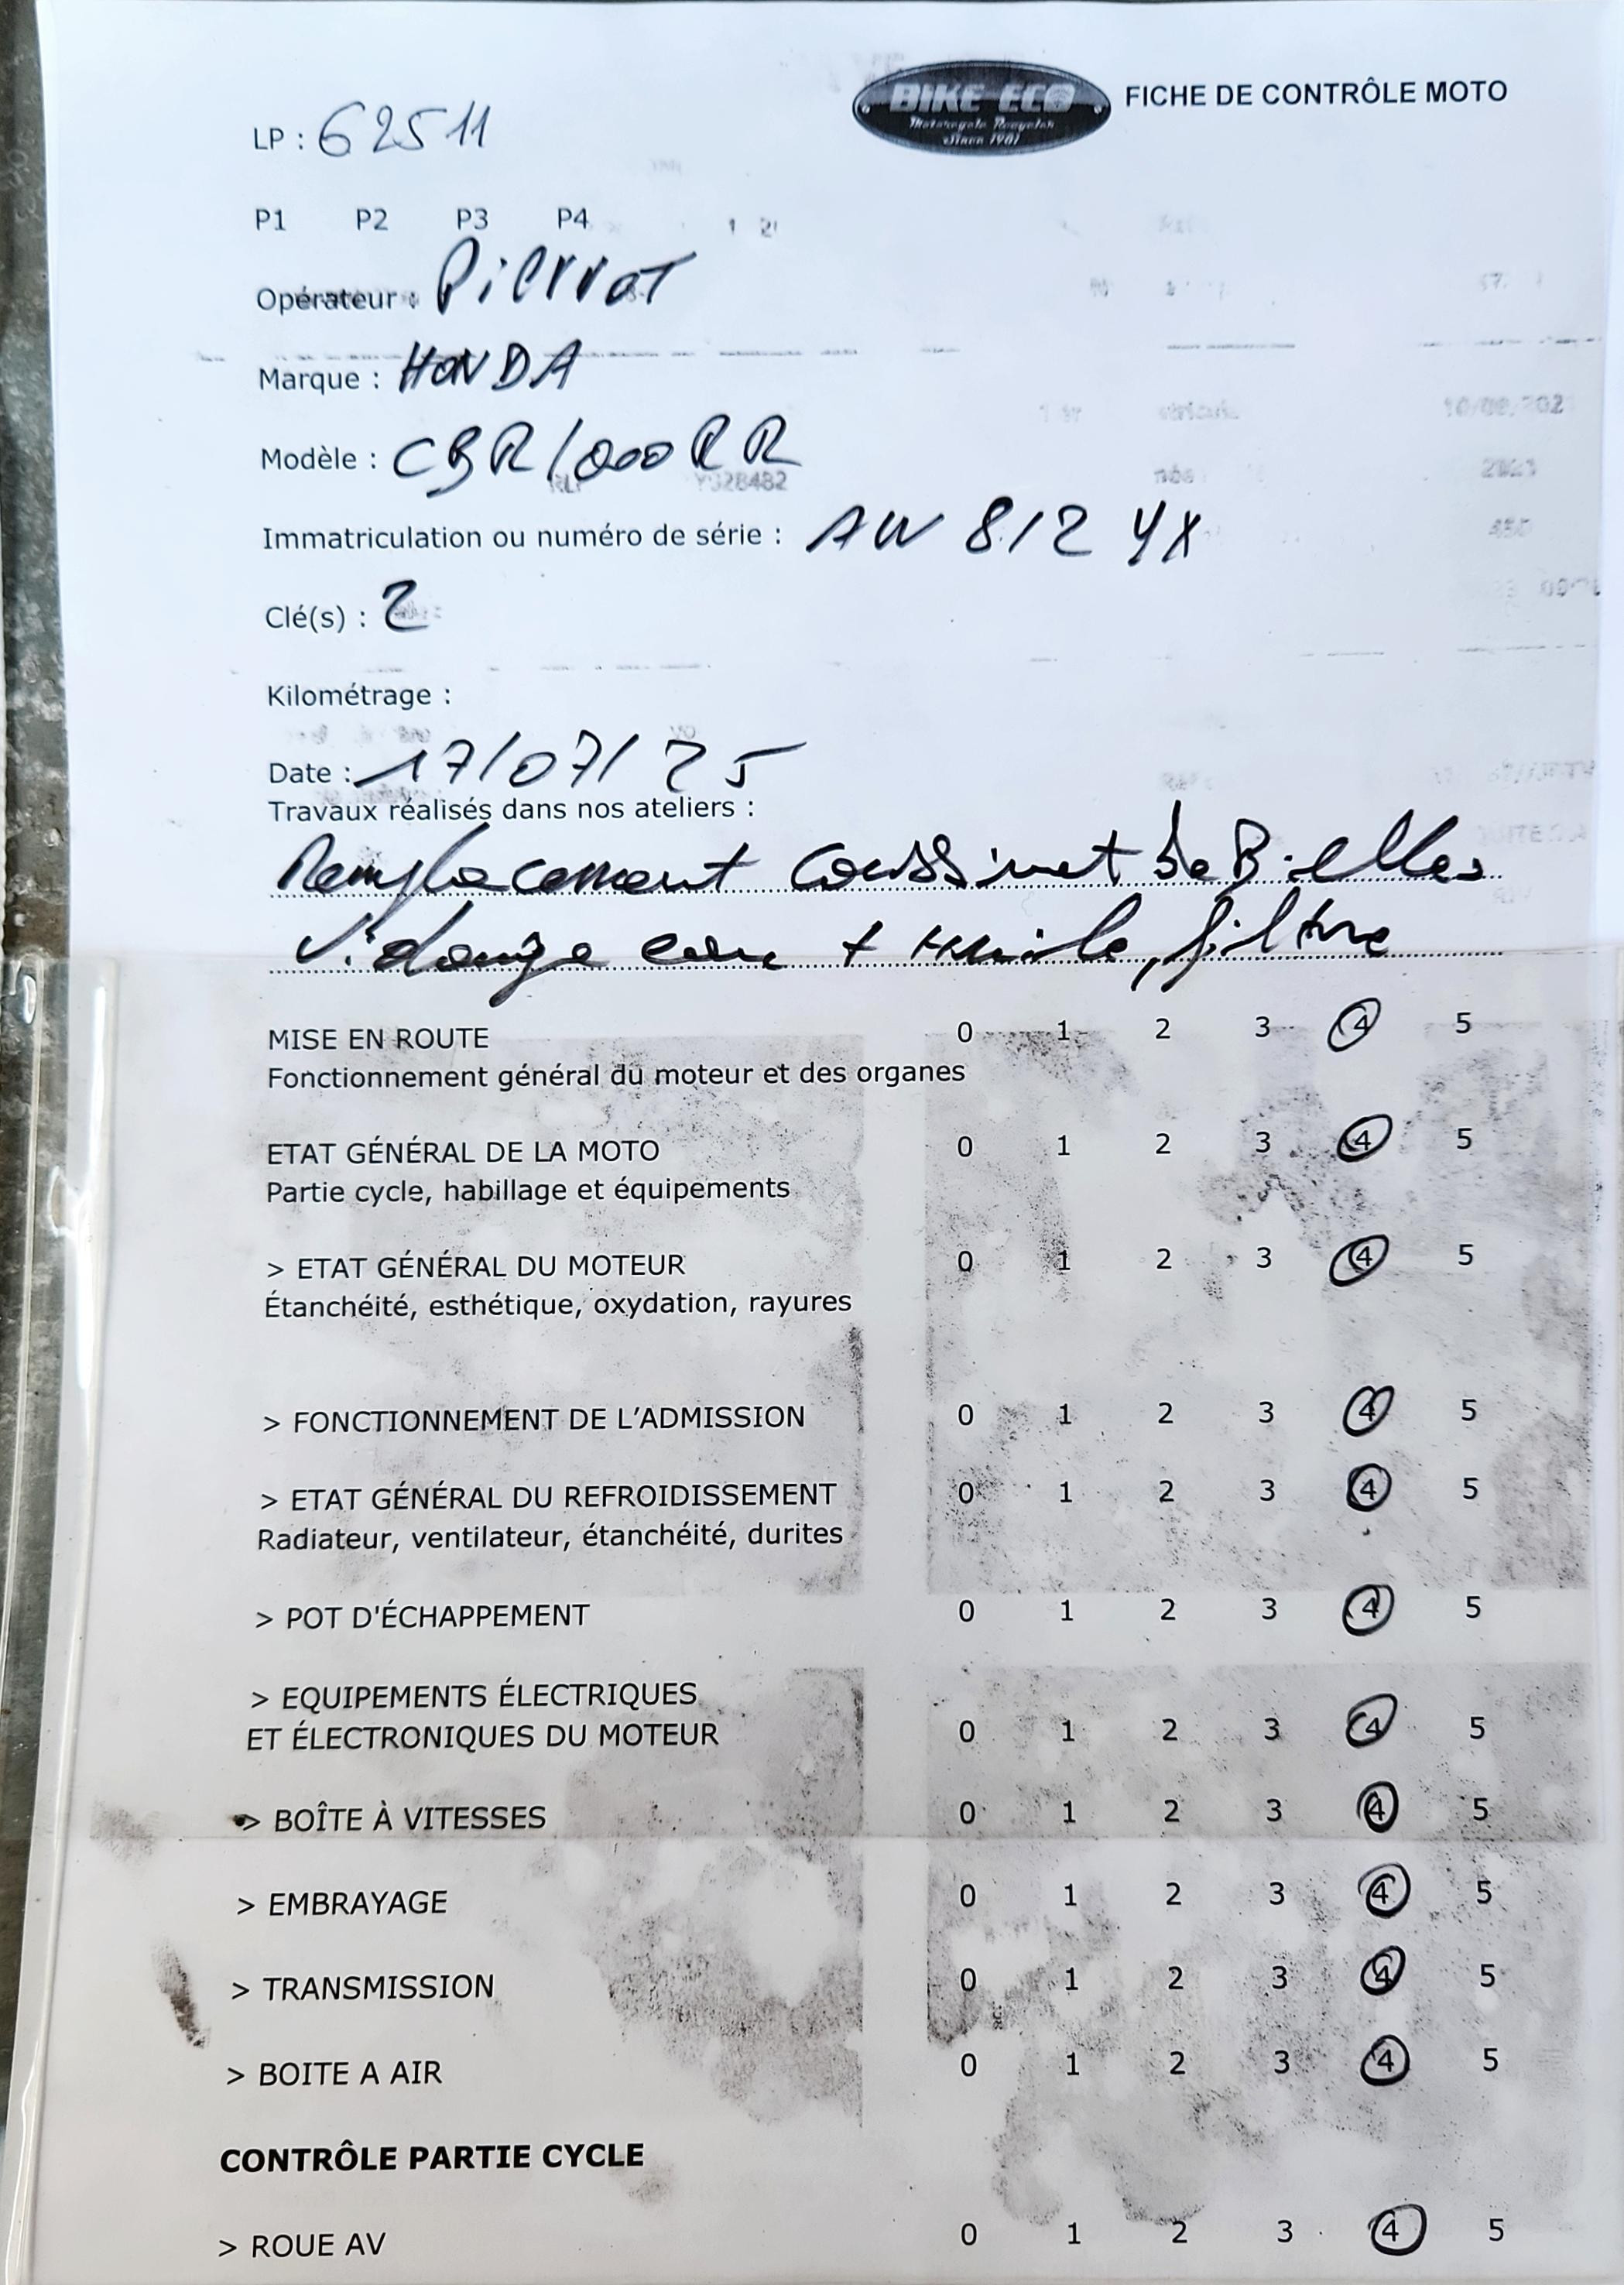 BIKE ECO
Motorcycle Recycler
Since 1981
FICHE DE CONTRÔLE MOTO
LP : 62511
P1 P2 P3 P4
Opérateur : Pierrot
Marque : HONDA
Modèle : CBR1000RR
Y028482
Immatriculation ou numéro de série : AW 812 YX
Clé(s) : 2
Kilométrage :
Date : 17/07/25
Travaux réalisés dans nos ateliers :
Remplacement coussinet de Bielles
Vidange eau + huile, filtre
MISE EN ROUTE 0 1 2 3 4 5
Fonctionnement général du moteur et des organes
ETAT GÉNÉRAL DE LA MOTO 0 1 2 3 4 5
Partie cycle, habillage et équipements
> ETAT GÉNÉRAL DU MOTEUR 0 1 2 3 4 5
Étanchéité, esthétique, oxydation, rayures
> FONCTIONNEMENT DE L'ADMISSION 0 1 2 3 4 5
> ETAT GÉNÉRAL DU REFROIDISSEMENT 0 1 2 3 4 5
Radiateur, ventilateur, étanchéité, durites
> POT D'ÉCHAPPEMENT 0 1 2 3 4 5
> EQUIPEMENTS ÉLECTRIQUES
ET ÉLECTRONIQUES DU MOTEUR 0 1 2 3 4 5
> BOÎTE À VITESSES 0 1 2 3 4 5
> EMBRAYAGE 0 1 2 3 4 5
> TRANSMISSION 0 1 2 3 4 5
> BOITE A AIR 0 1 2 3 4 5
CONTRÔLE PARTIE CYCLE
> ROUE AV 0 1 2 3 4 5